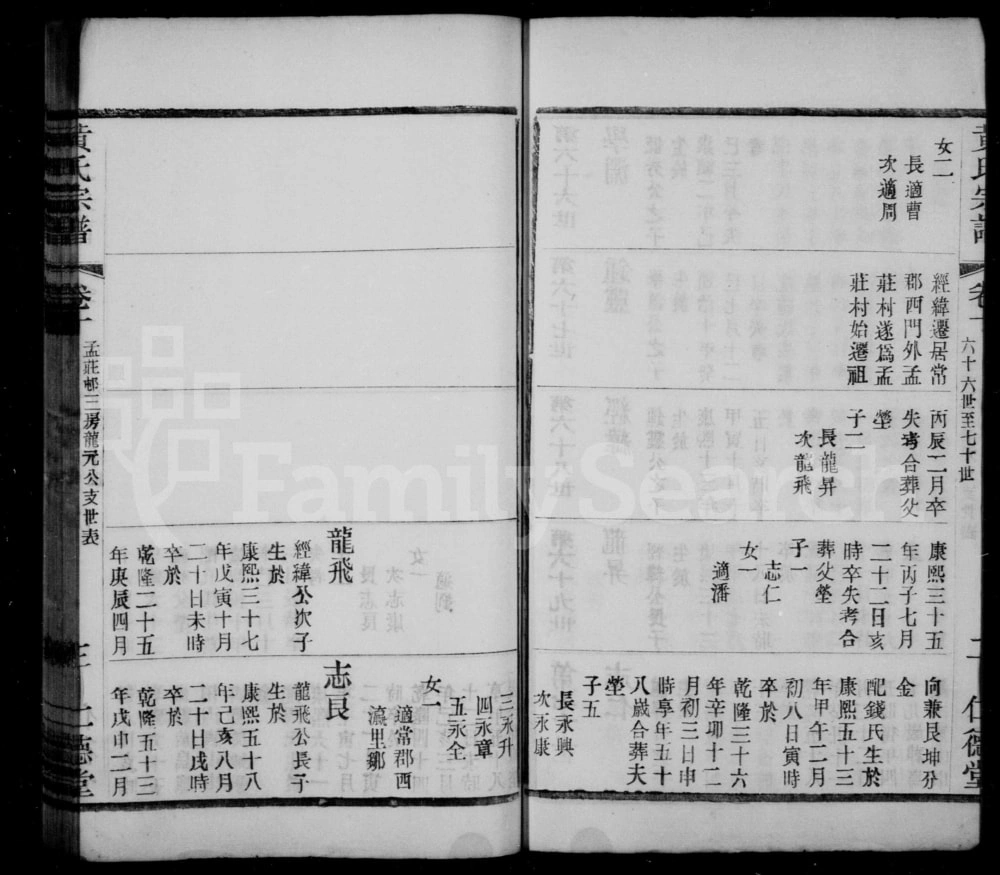 黃氏宗譜
卷一
六十六世至七十世
二
仁德堂
女二
長適曹
次適周
經緯遷居常
郡西門外孟
莊村遂爲孟
莊村始遷祖
丙辰二月卒
失考合葬父
塋
子二
長龍昇
次龍飛
康熙三十五
年丙子七月
二十二日亥
時卒失考合
葬父塋
子一
志仁
女一
適潘
向兼艮坤分
金
配錢氏生於
康熙五十三
年甲午二月
初八日寅時
卒於
乾隆三十六
年辛卯十二
月初三日申
時享年五十
八歲合葬夫
塋
子五
長永興
次永康
三永升
四永章
五永全
女一
適常郡西
瀛里鄒
龍飛
經緯公次子
生於
康熙三十七
年戊寅十月
二十日未時
卒於
乾隆二十五
年庚辰四月
志良
龍飛公長子
生於
康熙五十八
年己亥八月
二十日戌時
卒於
乾隆五十三
年戊申二月
黃氏宗譜
卷一
孟莊邨三房龍元公支世表
三
仁德堂
FamilySearch